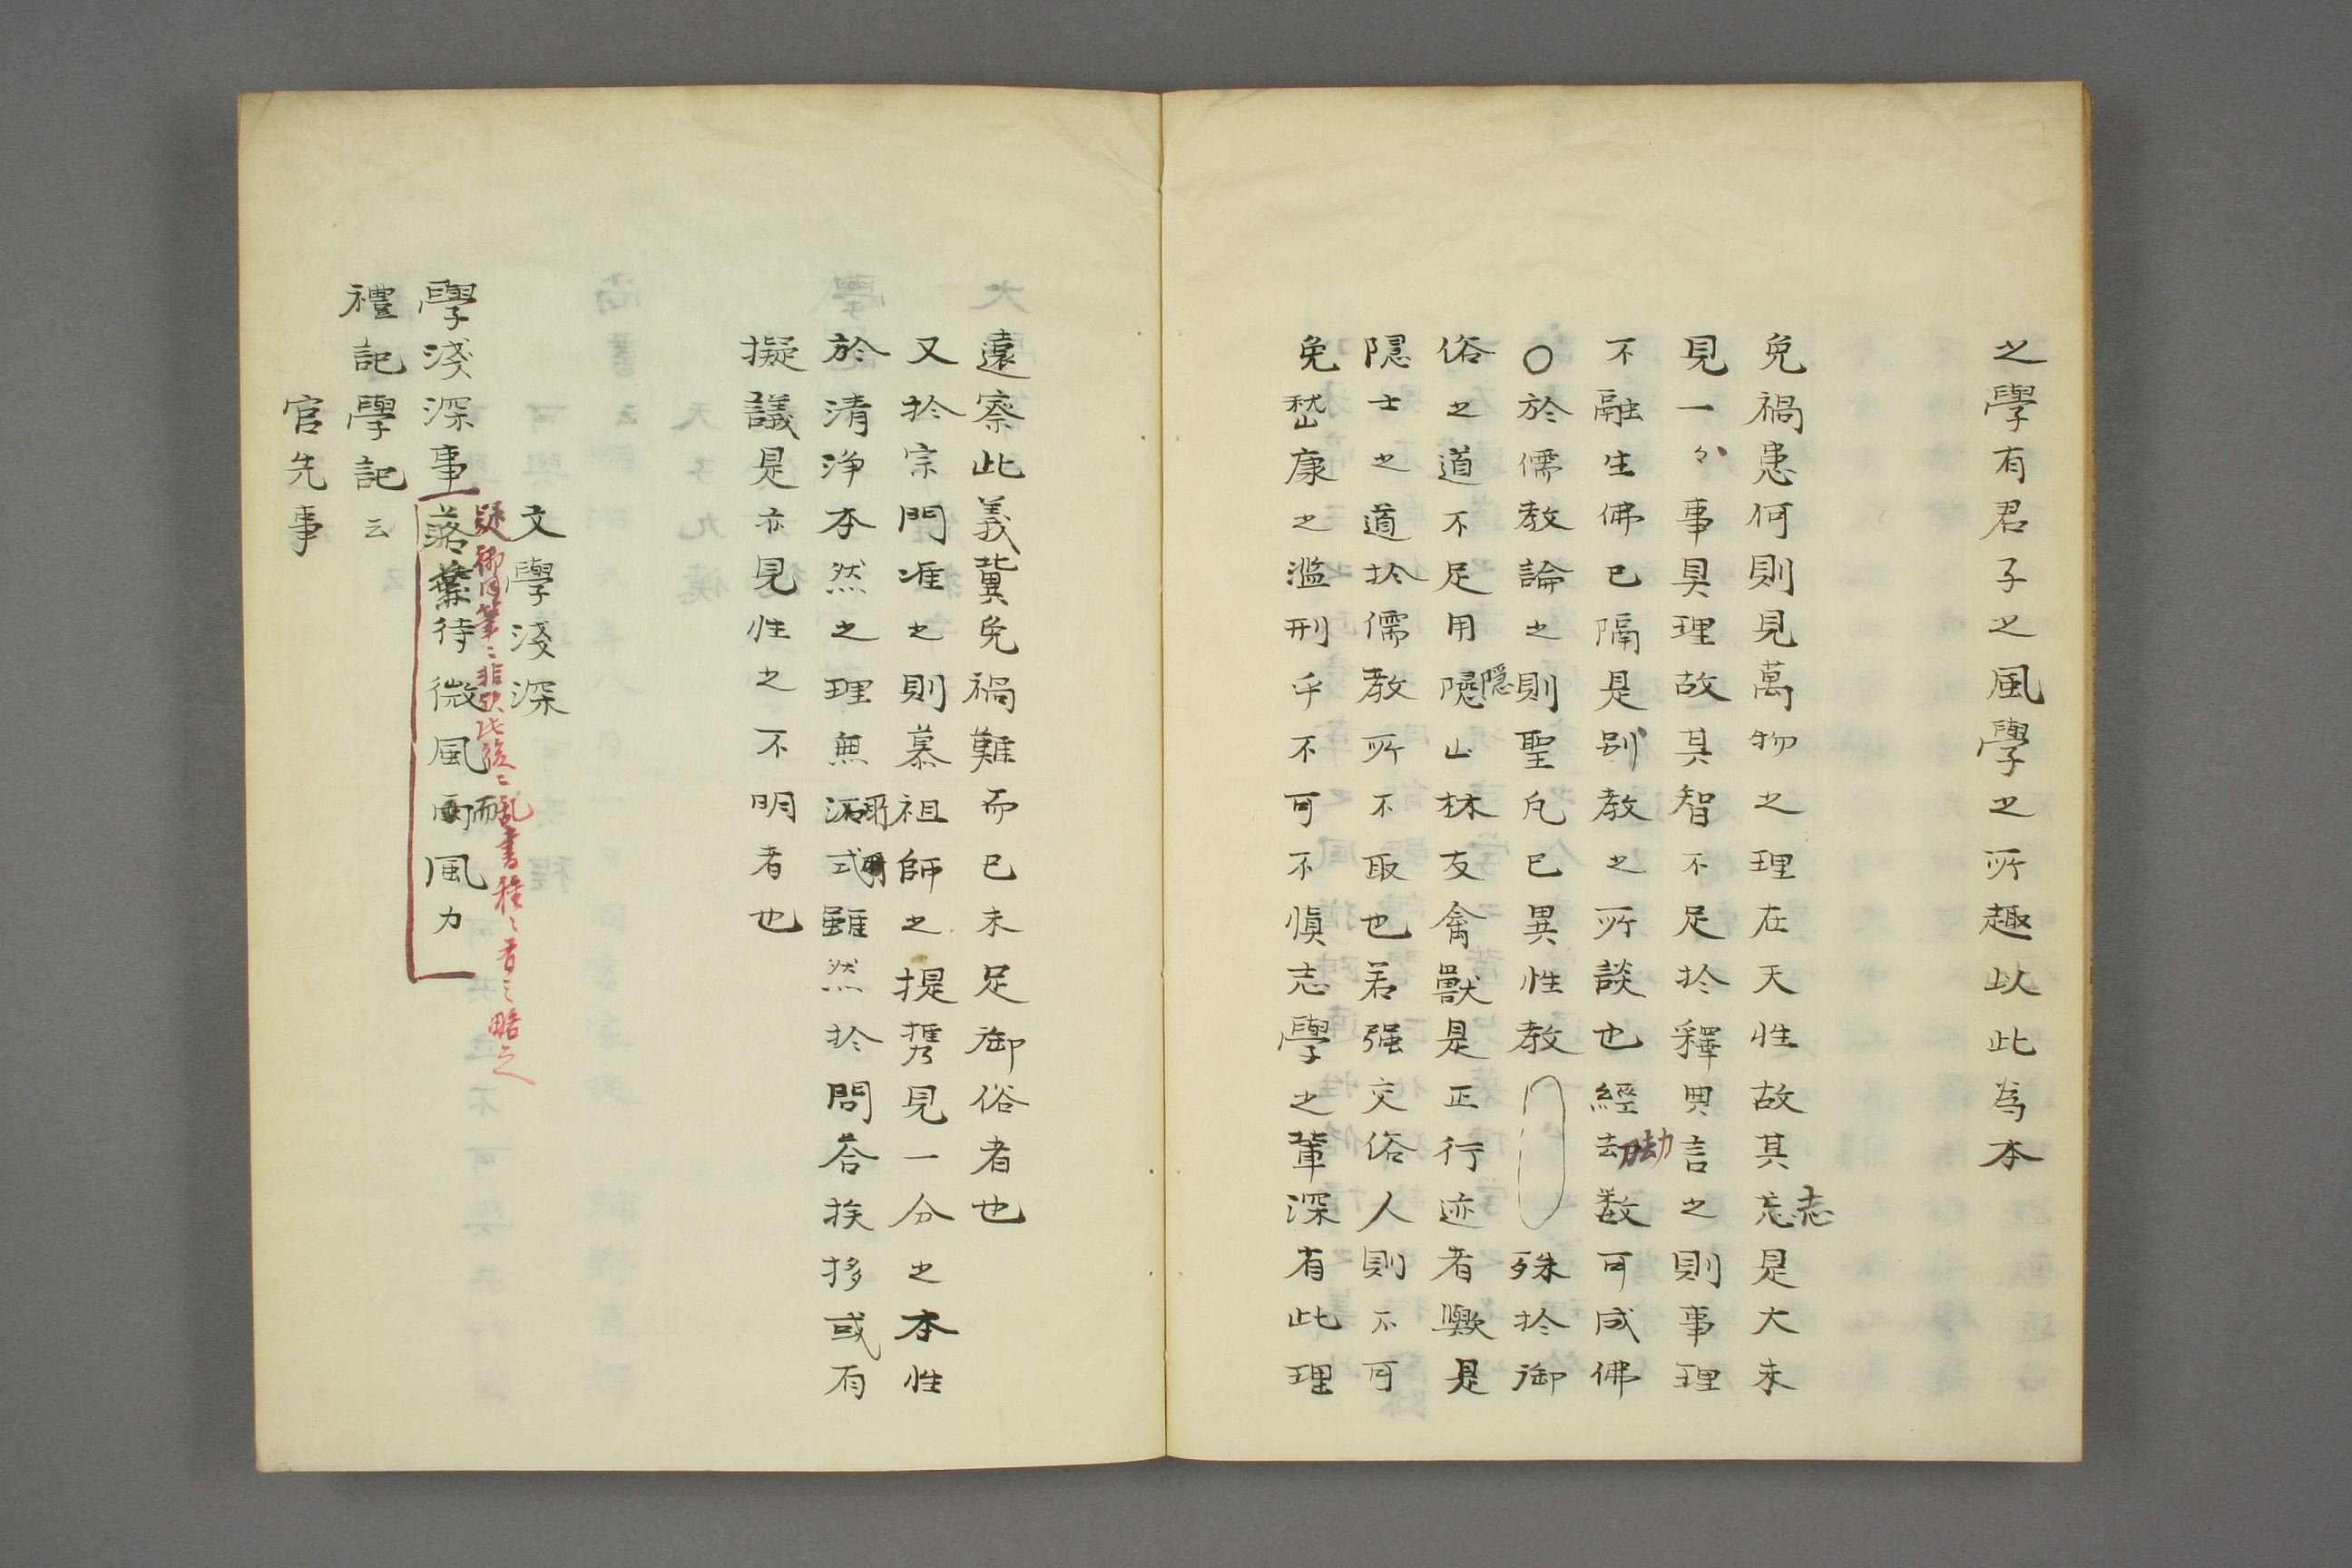 之學有君子之風學之所趣以此為本
免禍患何則見萬物之理在天性故其忘是大未
志
見一々事具理故其智不足扵釋典言之則事理
不融生佛已隔是別教之所談也經去数可成佛
劫
○於儒教論之則聖凡已異性教殊扵御
俗之道不足用隠山林友禽獸是正行迹者歟是
隱
隠士之道扵儒教所不取也若强交俗人則不可
免嵆康之濫刑乎不可不慎志學之輩深有此理
遠察此義冀免禍難而已未足御俗者也
又扵宗門准之則慕祖師之提携見一分之本性
於清淨本然之理無式雖然扵問答挨拶或有
擬議是亦見性之不明者也
文學淺深
學淺深事落葉待微風雨風力
而
疑御同筆ニ非歟此後ニ乱書種々有之略之
禮記學記云
官先事